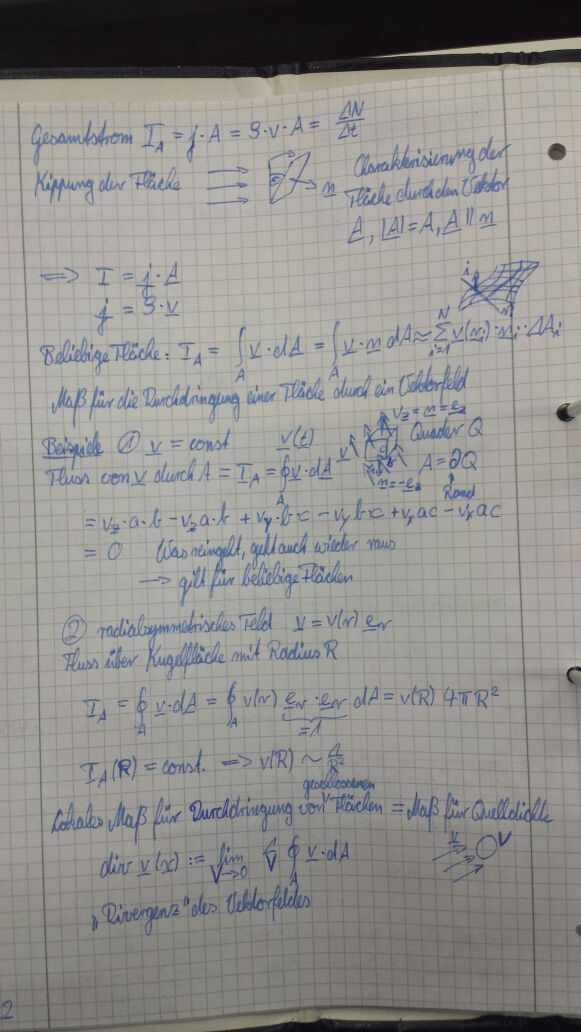 Gesamtstrom I_A = j·A = ρ·v·A = ΔN/Δt
Kippung der Fläche
n
Charakterisierung der
Fläche durch den Vektor
A, |A| = A, A || n
⟹ I = j·A
j = ρ·v
i
Beliebige Fläche: I_A = ∫_A v·dA = ∫_A v·n dA ≈ Σ_{i=1}^N v(r_i)·n_i·ΔA_i
Maß für die Durchdringung einer Fläche durch ein Vektorfeld
Beispiele ① v = const v(t)
v v_z = n = e_z
Quader Q
n = -e_z
A = ∂Q
Rand
Fluss von v durch A = I_A = ∮_A v·dA
= v_z·a·b - v_z a·b + v_y·b·c - v_y b c + v_x a c - v_x a c
= 0 Was reingeht, geht auch wieder raus
→ gilt für beliebige Flächen
② radialsymmetrisches Feld v = v(r) e_r
Fluss über Kugelfläche mit Radius R
I_A = ∮_A v·dA = ∮_A v(r) e_r·e_r dA = v(R) 4πR²
=1
I_A(R) = const. ⟹ v(R) ~ 1/R²
geschlossenen
Lokales Maß für Durchdringung von Flächen = Maß für Quelldichte
div v(r) := lim_{V→0} 1/V ∮_A v·dA
v V
„Divergenz" des Vektorfeldes
2